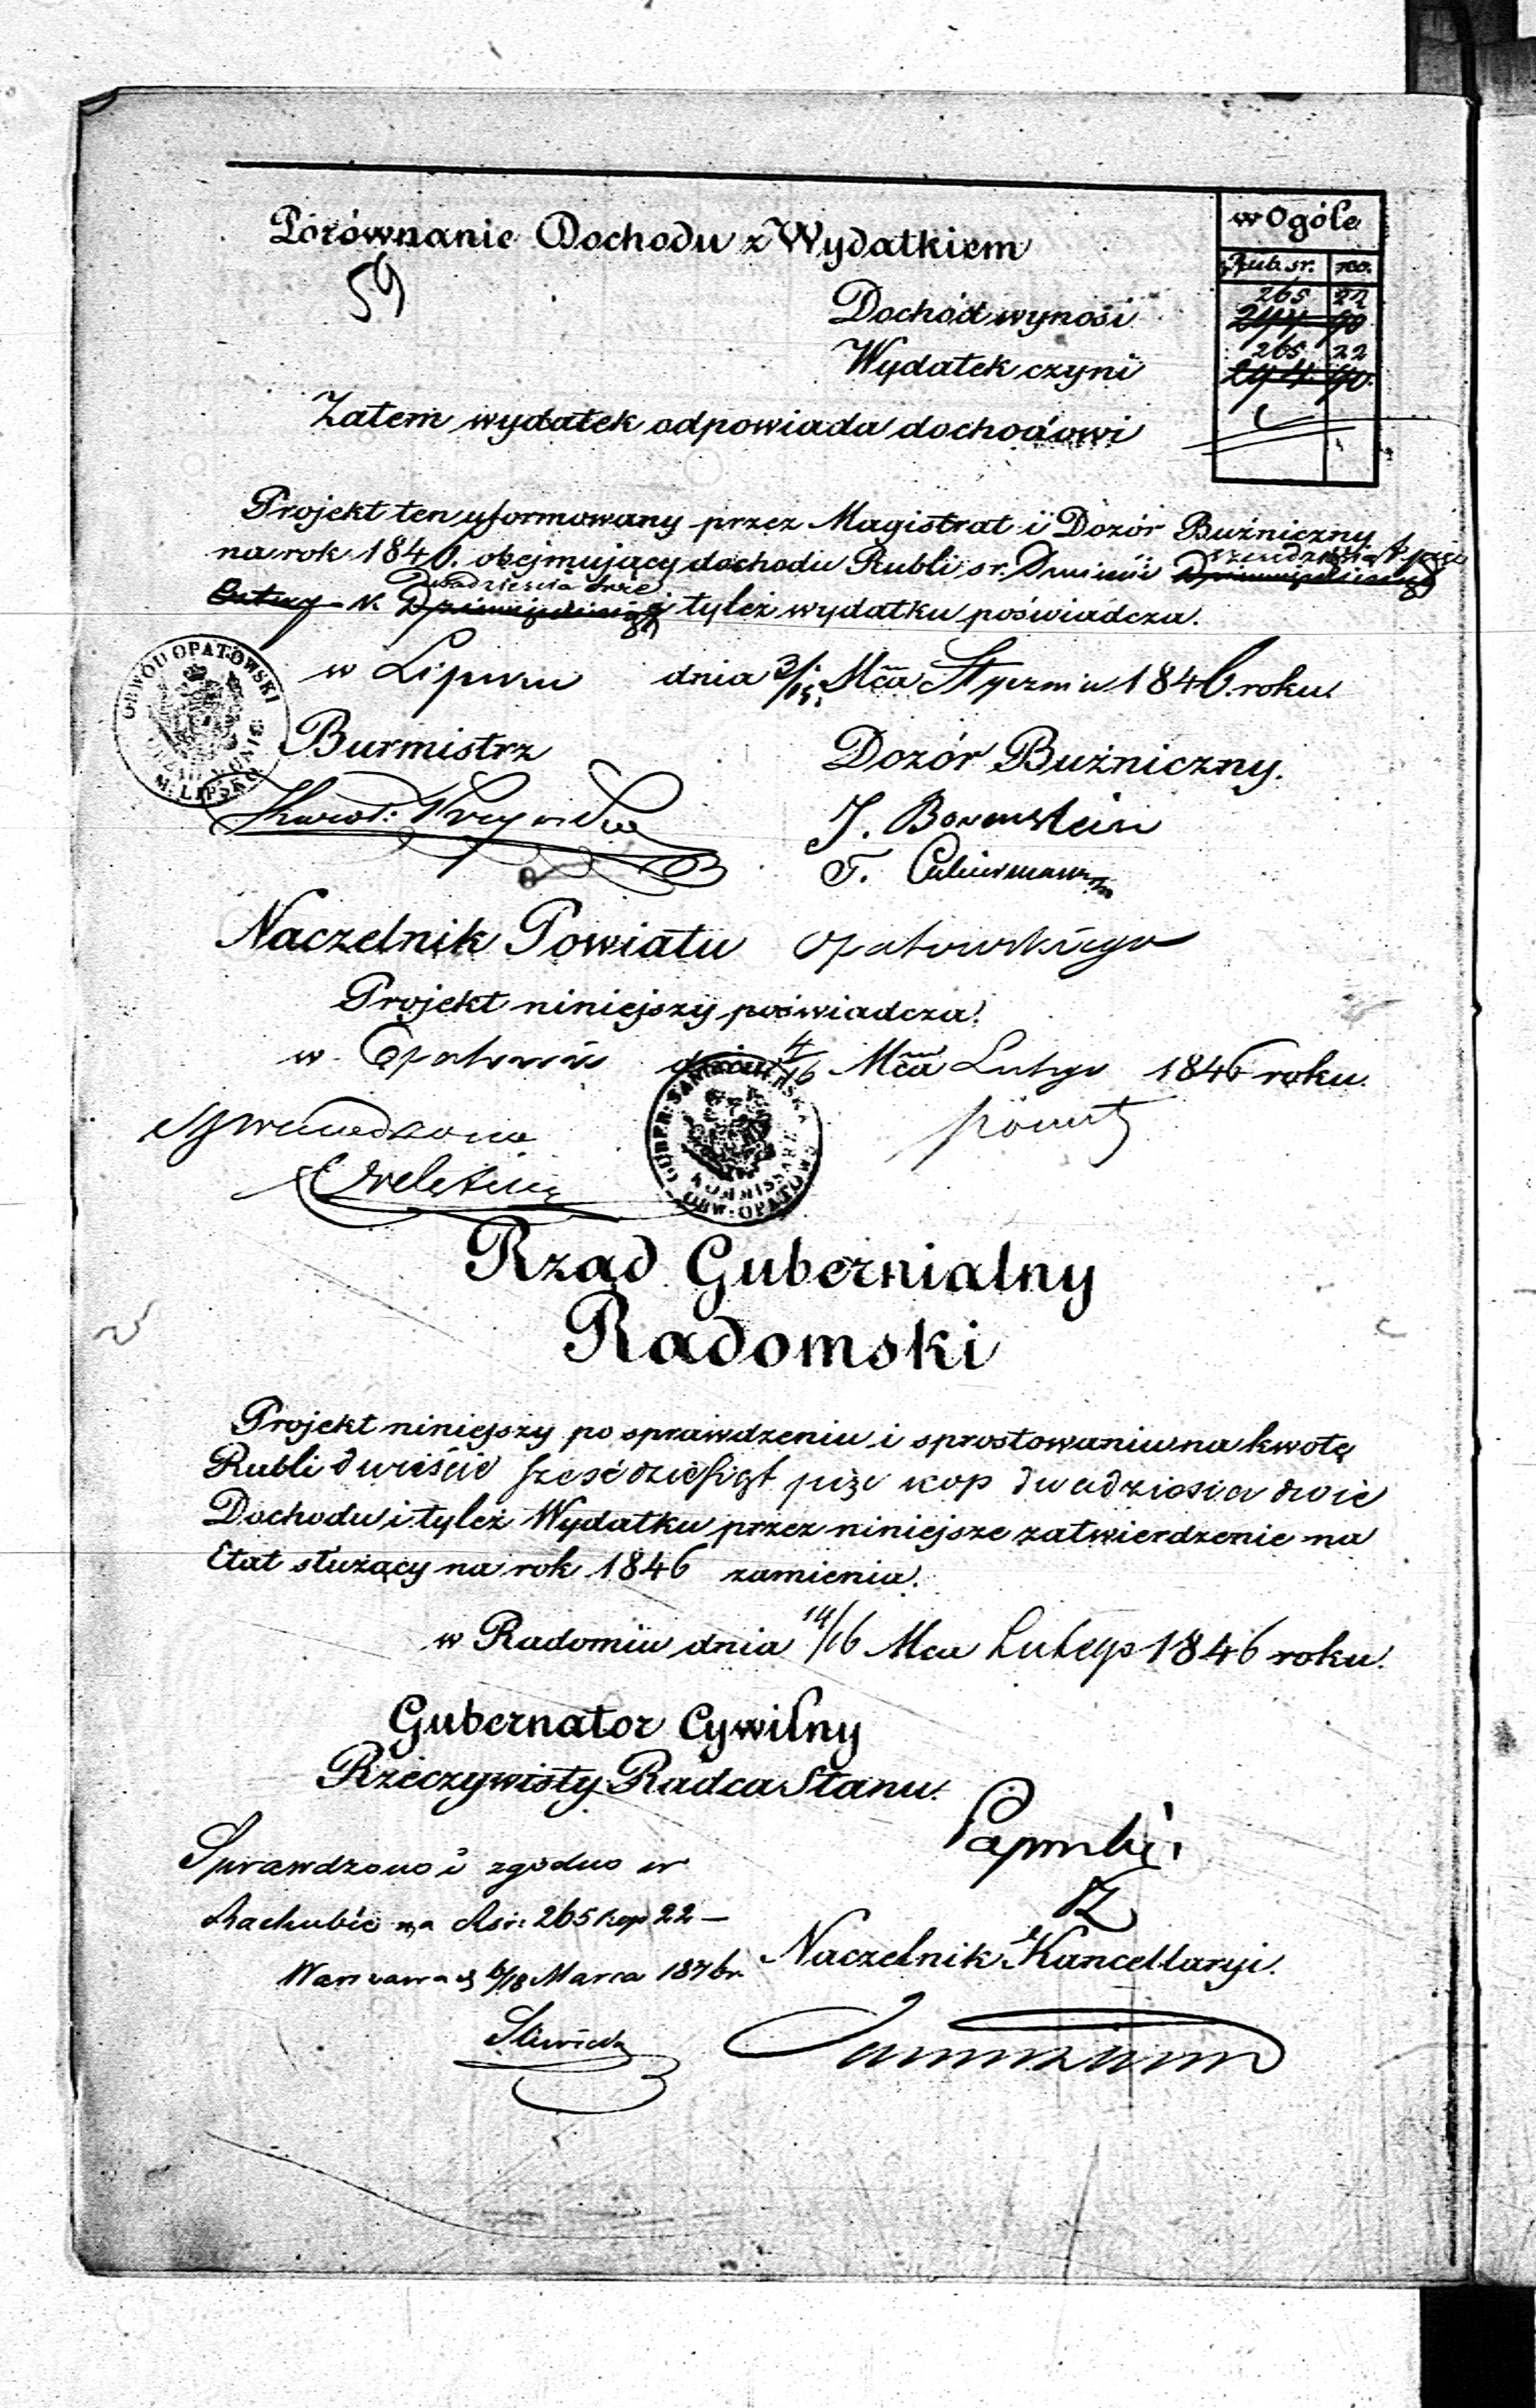 Porównanie Dochodu z Wydatkiem
59
w Ogóle
Rub. sr. ko.
Dochód wynosi 265 22
294 90
Wydatek czyni 265 22
294 90
Zatem wydatek odpowiada dochodowi
Projekt ten uformowany przez Magistrat i Dozór Buźniczny
na rok 1846. obejmujący dochodu Rubli sr. Dwieście sześćdziesiąt pięć
k. Dwadzieścia dwie i tyleż wydatku poświadcza.
w Lipsku dnia 3/15 Mca Stycznia 1846. roku.
OBWÓD OPATOWSKI
M. LIPSKO
Burmistrz
Dozór Buźniczny.
Karol
J. Borensztein
F.
Naczelnik Powiatu Opatowskiego
Projekt niniejszy poświadcza.
w Opatowie dnia 4/16 Mca Lutego 1846 roku.
GUBER: SANDOMIERSKA
KOMMISSARZ
OBW: OPATOWS
Rząd Gubernialny
Radomski
Projekt niniejszy po sprawdzeniu i sprostowaniu na kwotę
Rubli dwieście sześćdziesiąt pięć kop dwadzieścia dwie
Dochodu i tyleż Wydatku przez niniejsze zatwierdzenie na
Etat służący na rok 1846 zamienia.
w Radomiu dnia 14/16 Mca Lutego 1846 roku.
Gubernator Cywilny
Rzeczywisty Radca Stanu.
Sprawdzono i zgodno w
Rachubie na Rsr. 265 kop 22 –
Warszawa d 6/18 Marca 1846 r.
Naczelnik Kancellaryi.